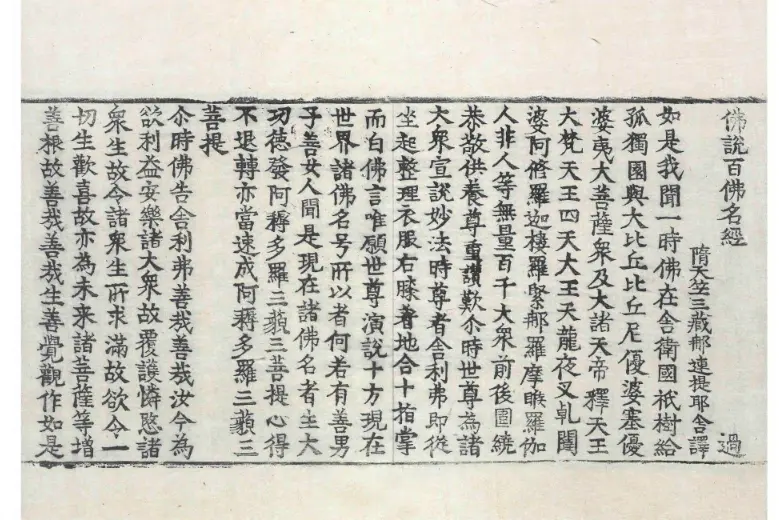 佛說百佛名經
隋天竺三藏那連提耶舍譯 過
如是我聞一時佛在舍衛國祇樹給
孤獨園與大比丘比丘尼優婆塞優
婆夷大菩薩衆及大諸天帝釋天王
大梵天王四天大王天龍夜叉乹闥
婆阿脩羅迦樓羅緊那羅摩睺羅伽
人非人等無量百千大衆前後圍繞
恭敬供養尊重讚歎尒時世尊為諸
大衆宣說妙法時尊者舍利弗即從
坐起整理衣服右膝著地合十指掌
而白佛言唯願世尊演說十方現在
世界諸佛名号所以者何若有善男
子善女人聞是現在諸佛名者生大
功德發阿耨多羅三藐三菩提心得
不退轉亦當速成阿耨多羅三藐三
菩提
尒時佛告舍利弗善哉善哉汝今為
欲利益安樂諸大衆故覆護憐愍諸
衆生故令諸衆生所求滿故欲令一
切生歡喜故亦為未来諸菩薩等增
善根故善哉善哉生善覺觀作如是